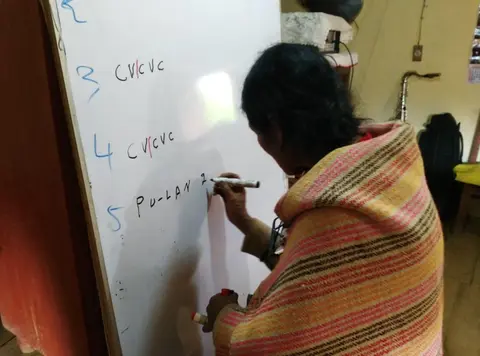 3 CV|CVC
4 CV|CVC
5 PU-LAN